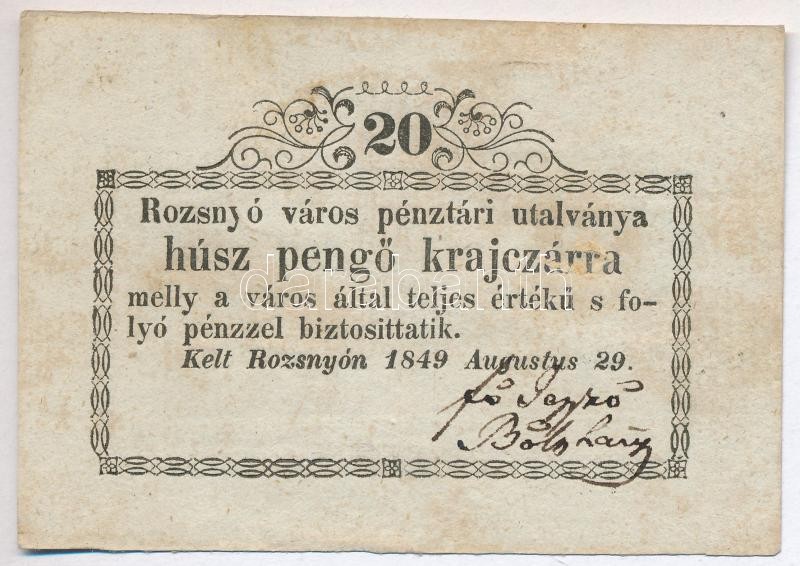 20
Rozsnyó város pénztári utalványa
húsz pengő krajczárra
melly a város által teljes értékű s fo-
lyó pénzzel biztosittatik.
Kelt Rozsnyón 1849 Augustus 29.
fő Jegyző
darabanth